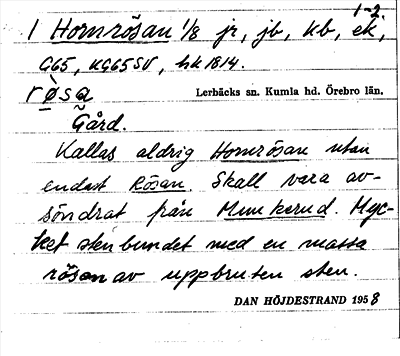 1-2
1 Hornrösan 1/8 jr, jb, kb, ek,
G65, KG65SV, hk 1814.
rò̱sa̰ Lerbäcks sn. Kumla hd. Örebro län.
Gård.
Kallas aldrig Hornrösan utan
endast Rösan. Skall vara av-
söndrat från Munkerud. Myc-
ket stenbundet med en massa
rösen av uppbruten sten.
DAN HÖJDESTRAND 1958